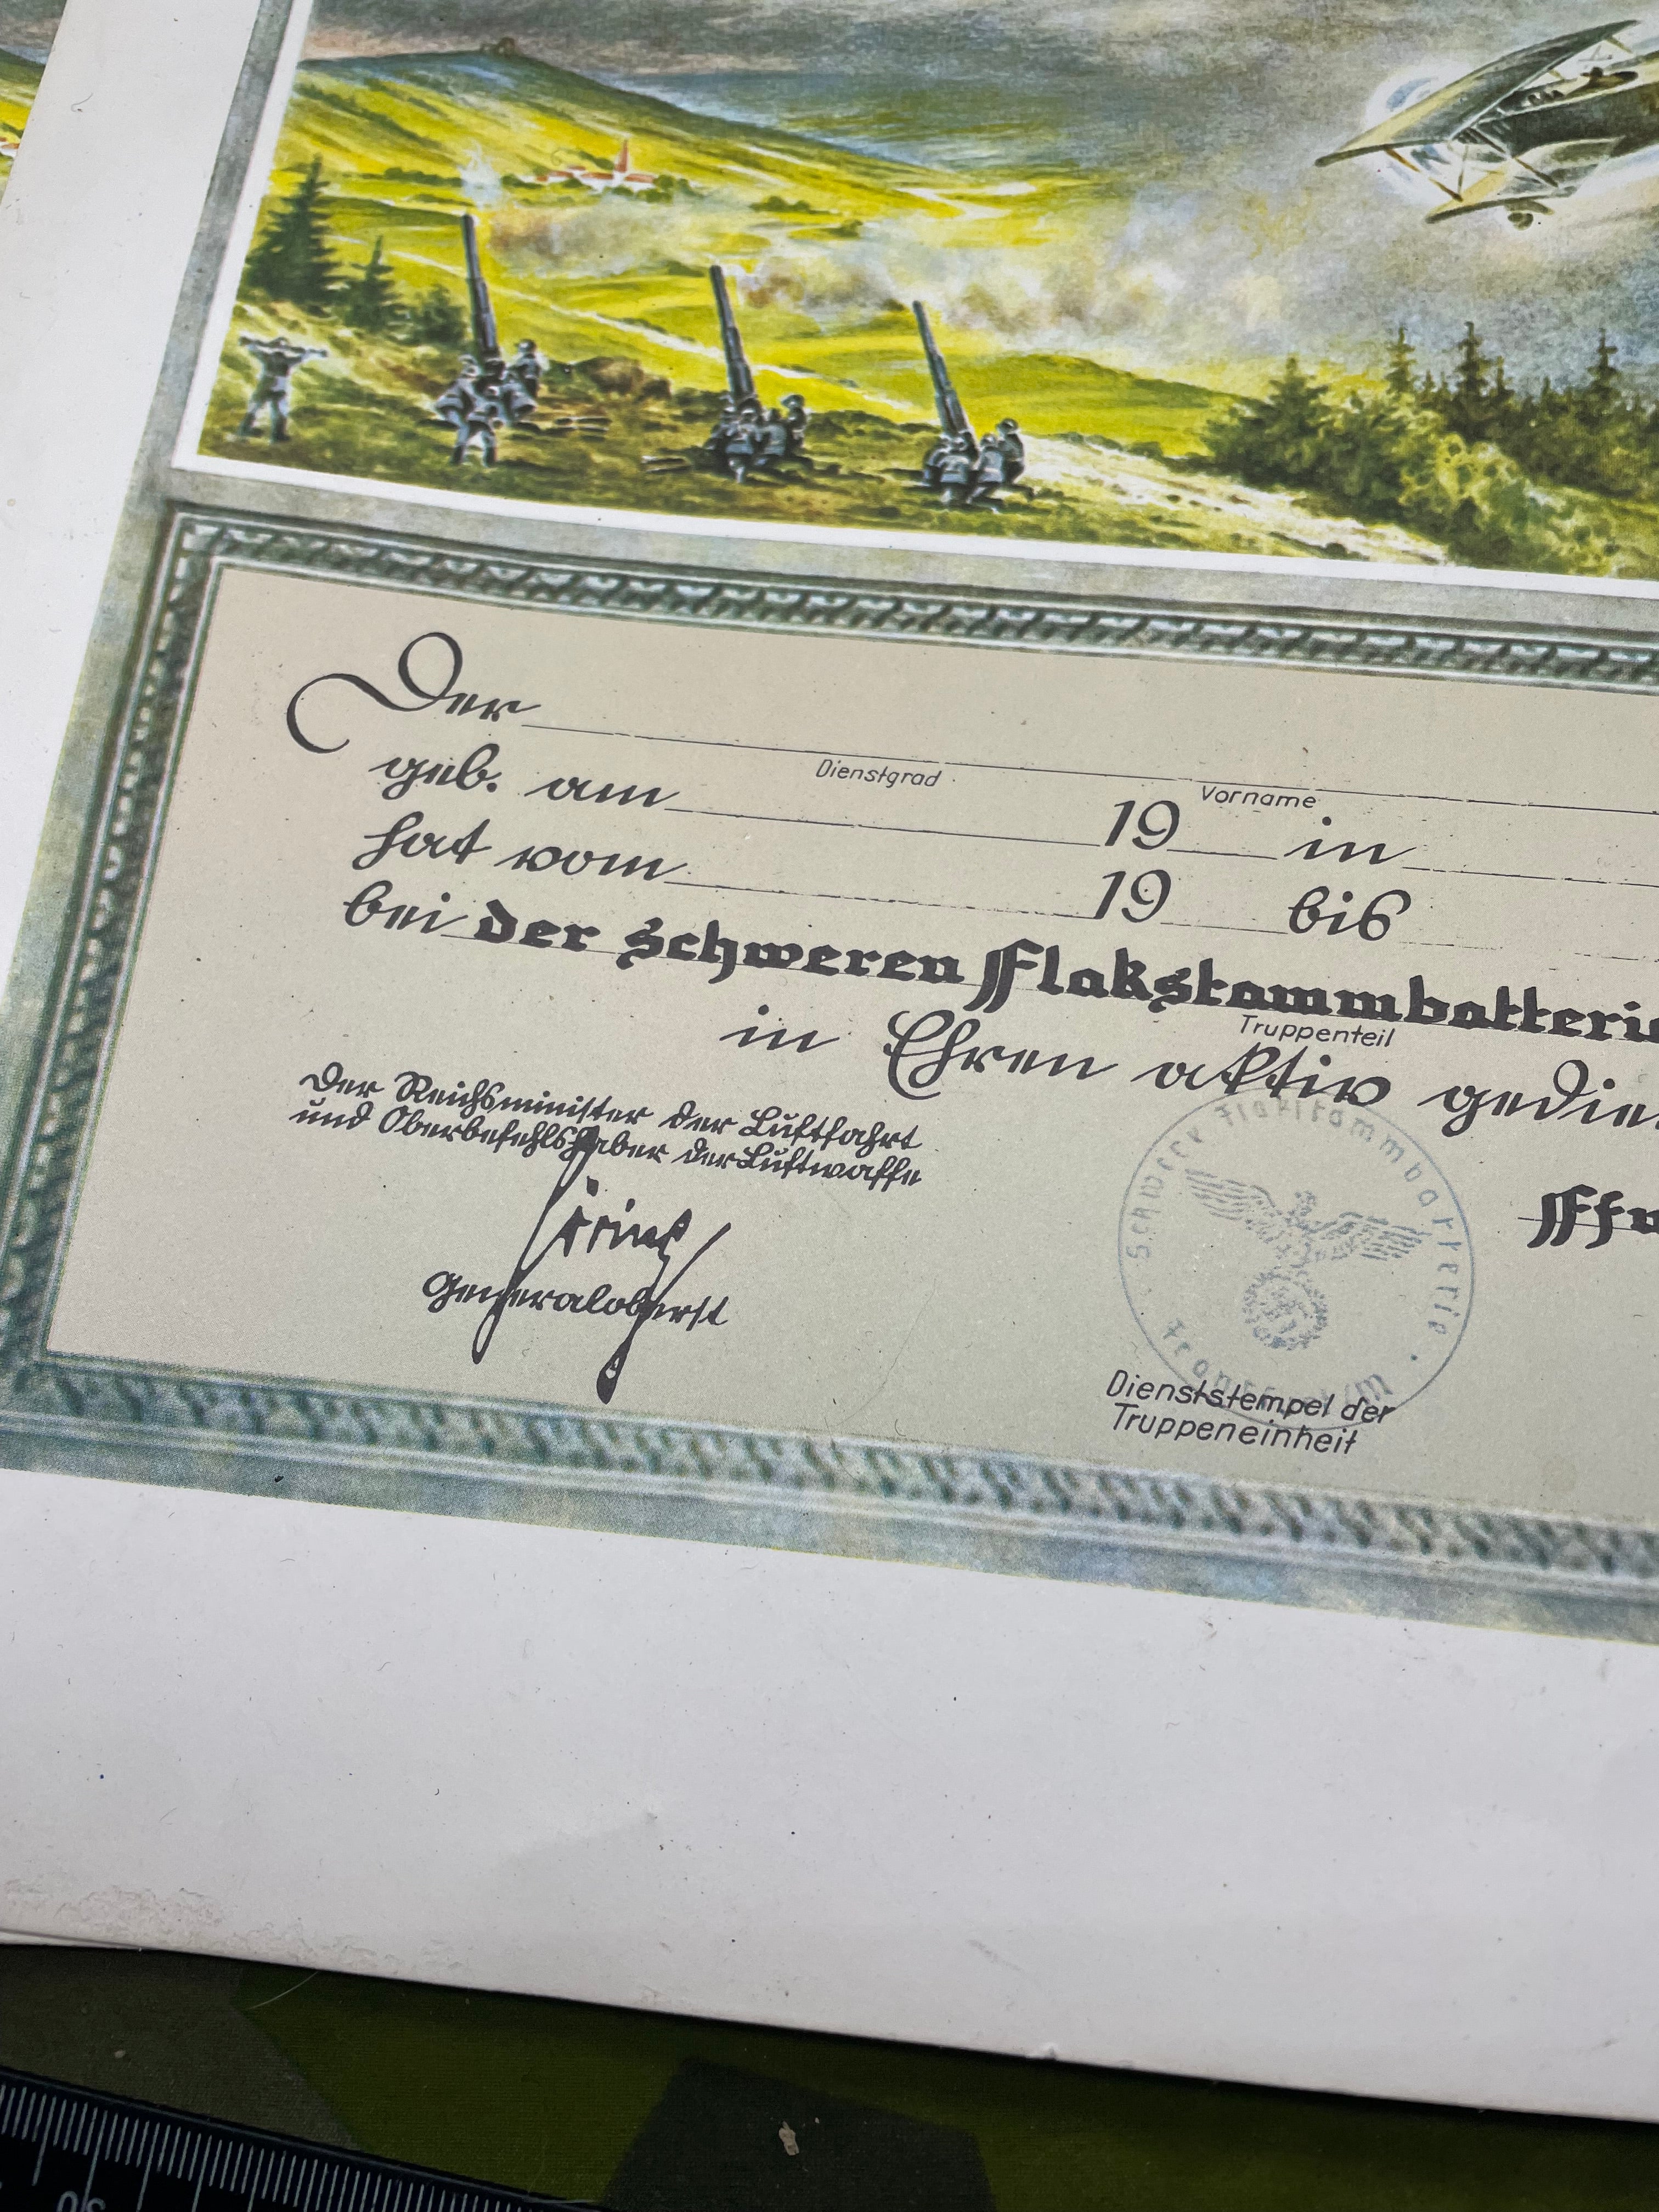 Der
Dienstgrad Vorname
geb. am 19 in
hat vom 19 bis
bei der schweren Flakstammbatterie
Truppenteil
in Ehren aktiv gedie
Der Reichsminister der Luftfahrt
und Oberbefehlshaber der Luftwaffe
Göring
Generaloberst
Schwere Flakstammbatterie
Dienststempel der
Truppeneinheit
30